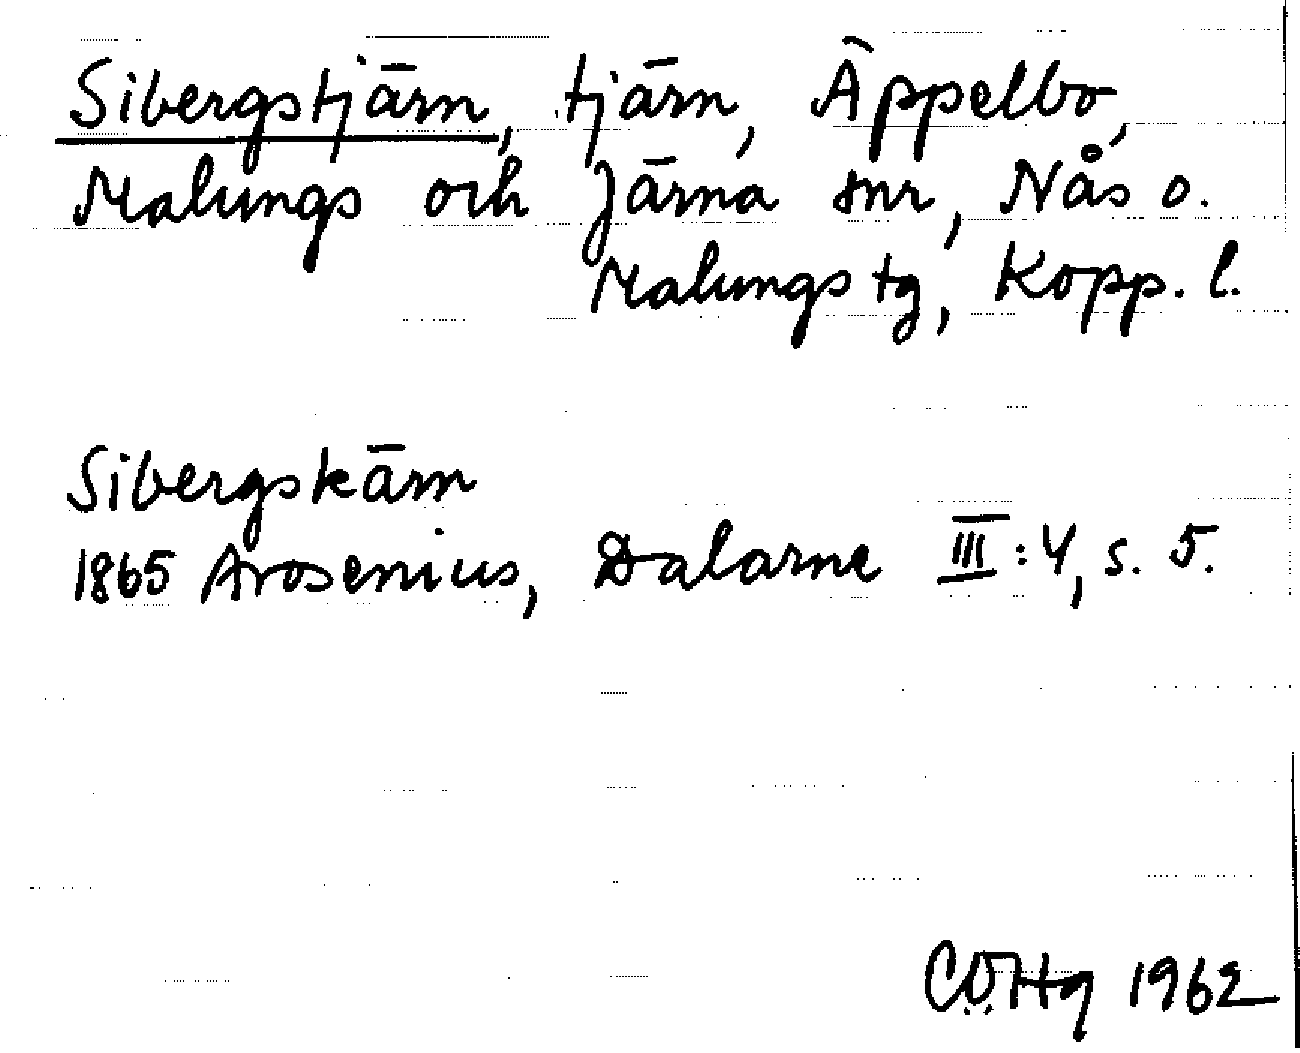 Sibergstjärn, tjärn, Äppelbo,
Malungs och Järna snr, Nås o.
Malungs tg, Kopp. l.
Sibergskärn
1865 Arosenius, Dalarne III:4, s. 5.
CÖHg 1962